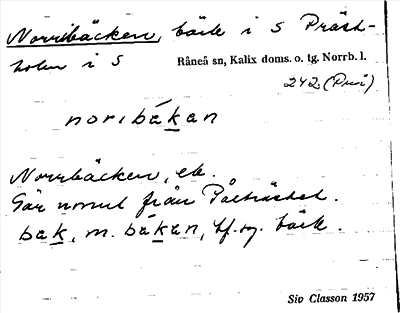 Norribäcken, bäck i S Präst-
holm i S
Råneå sn, Kalix doms. o. tg. Norrb. l.
242
noribákan
Norrbäcken, ek.
Går norrut från Påtträsket.
bak, m. bákan, bf. sg. bäck.
Siv Classon 1957